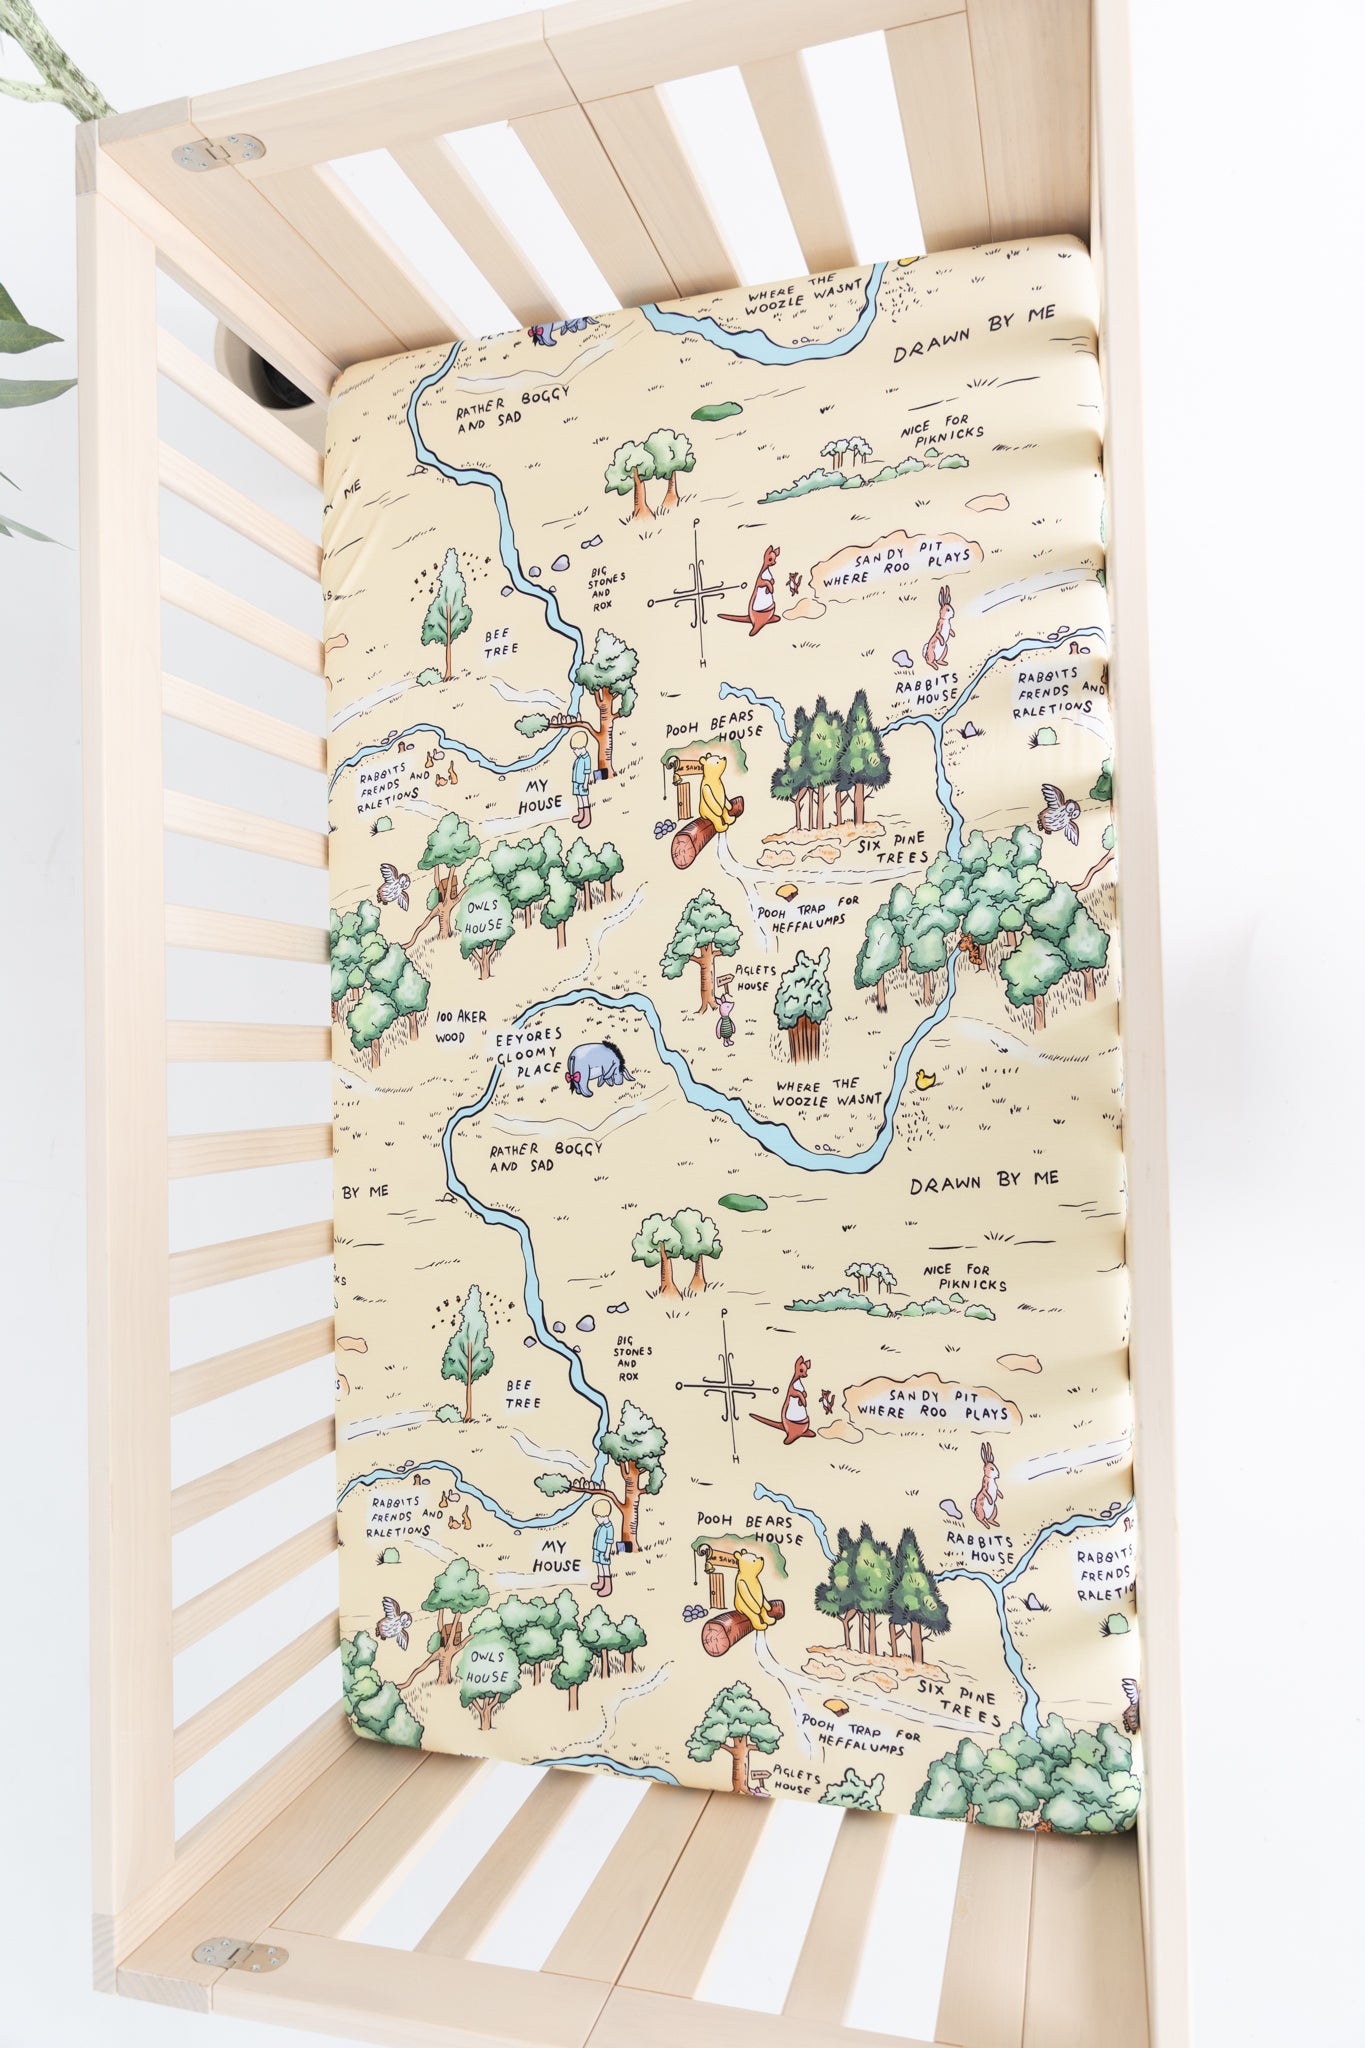 WHERE THE
WOOZLE WASNT
DRAWN BY ME
RATHER BOGGY
AND SAD
NICE FOR
PIKNICKS
ME
P
SANDY PIT
WHERE ROO PLAYS
BIG
STONES
AND
ROX
O
H
BEE
TREE
RABBITS
HOUSE
RABBITS
FRENDS AND
RALETIONS
POOH BEARS
HOUSE
RABBITS
FRENDS AND
RALETIONS
MY
HOUSE
SIX PINE
TREES
OWLS
HOUSE
POOH TRAP FOR
HEFFALUMPS
PIGLETS
HOUSE
100 AKER
WOOD
EEYORES
GLOOMY
PLACE
WHERE THE
WOOZLE WASNT
RATHER BOGGY
AND SAD
BY ME
DRAWN BY ME
NICE FOR
PIKNICKS
P
BIG
STONES
AND
ROX
O
H
SANDY PIT
WHERE ROO PLAYS
BEE
TREE
RABBITS
FRENDS AND
RALETIONS
POOH BEARS
HOUSE
RABBITS
HOUSE
RABBITS
FRENDS
MY
HOUSE
OWLS
HOUSE
SIX PINE
TREES
POOH TRAP FOR
HEFFALUMPS
PIGLETS
HOUSE